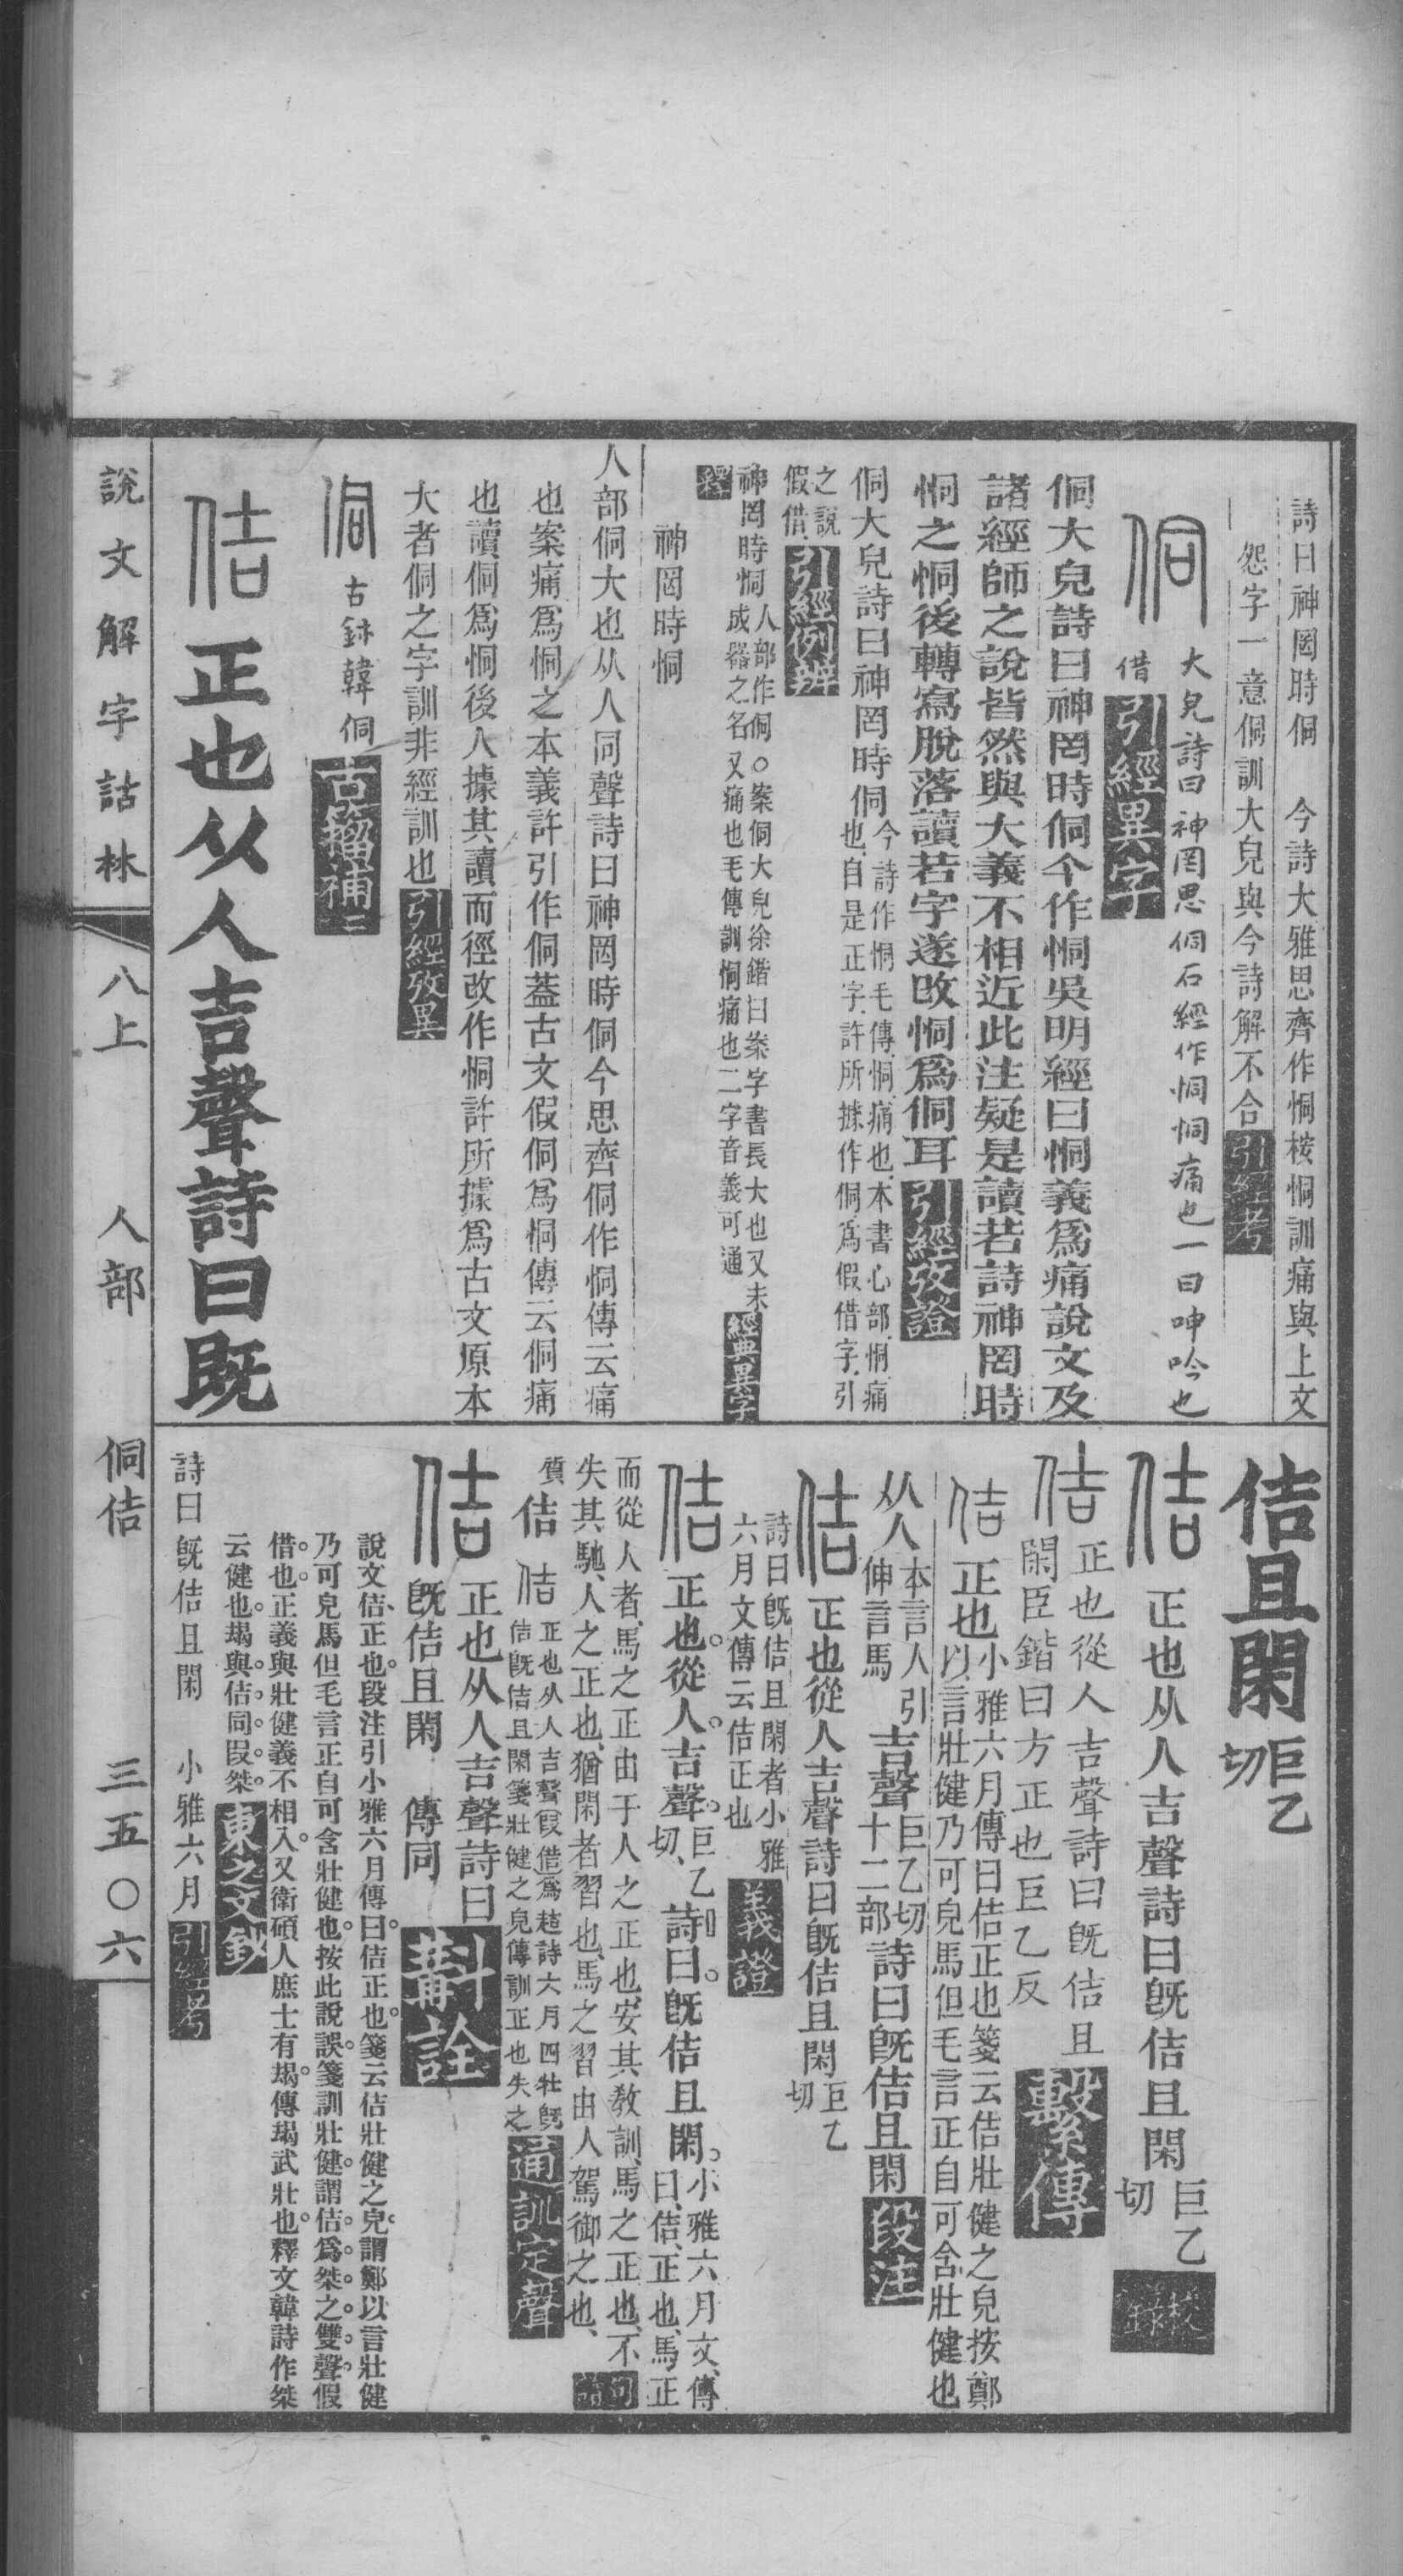 詩曰神罔時侗　今詩大雅思齊作恫桉恫訓痛與上文
怨字一意侗訓大皃與今詩解不合引經考
侗　大皃詩曰神罔思侗石經作恫恫痛也一曰呻吟也
借引經異字
侗大皃詩曰神罔時侗今作恫吳明經曰恫義爲痛說文及
諸經師之說皆然與大義不相近此注疑是讀若詩神罔時
恫之恫後轉寫脫落讀若字遂改恫爲侗耳引經攷證
侗大皃詩曰神罔時侗今詩作恫毛傳恫痛也本書心部恫痛
也自是正字許所據作侗爲假借字引
之說
假借引經例辨
神罔時恫人部作侗○案侗大皃徐鍇曰案字書長大也又未
成器之名又痛也毛傳訓恫痛也二字音義可通經典異字
釋
神罔時恫
人部侗大也从人同聲詩曰神罔時侗今思齊侗作恫傳云痛
也案痛爲恫之本義許引作侗蓋古文假侗爲恫傳云侗痛
也讀侗爲恫後人據其讀而徑改作恫許所據爲古文原本
大者侗之字訓非經訓也引經攷異
侗　古鉢韓侗古籀補三
佶　正也从人吉聲詩曰既
佶且閑巨乙切
佶　正也从人吉聲詩曰旣佶且閑巨乙切校錄
佶　正也從人吉聲詩曰旣佶且
閑臣鍇曰方正也巨乙反繫傳
佶　正也小雅六月傳曰佶正也箋云佶壯健之皃按鄭
以言壯健乃可皃馬但毛言正自可含壯健也
从人本言人引伸言馬吉聲巨乙切十二部詩曰旣佶且閑段注
佶　正也從人吉聲詩曰旣佶且閑巨乙切
詩曰旣佶且閑者小雅
六月文傳云佶正也義證
佶　正也。從人。吉聲。巨乙切、詩曰。旣佶且閑。小雅六月文、傳曰、佶、正也、馬正
而從人者、馬之正由于人之正也、安其教訓、馬之正也、不
失其馳、人之正也、猶閑者習也、馬之習由人駕御之也、句讀
質佶　佶　正也从人吉聲叚借爲趌詩六月四牡旣
佶旣佶且閑箋壯健之皃傳訓正也失之通訓定聲
佶　正也从人吉聲詩曰
旣佶且閑　傳同斠詮
說文佶、正也。段注引小雅六月傳曰。佶正也。箋云佶壯健之皃。謂鄭以言壯健
乃可皃馬但毛言正自可含壯健也。按此說誤。箋訓壯健。謂佶爲桀之雙聲假
借也。正義與壯健義不相入。又衛碩人庶士有朅。傳朅武壯也。釋文韓詩作桀
云健也。朅與佶同叚桀。東之文鈔
詩曰旣佶且閑　小雅六月引經考
說文解字詁林　八上　人部　侗佶　三五〇六